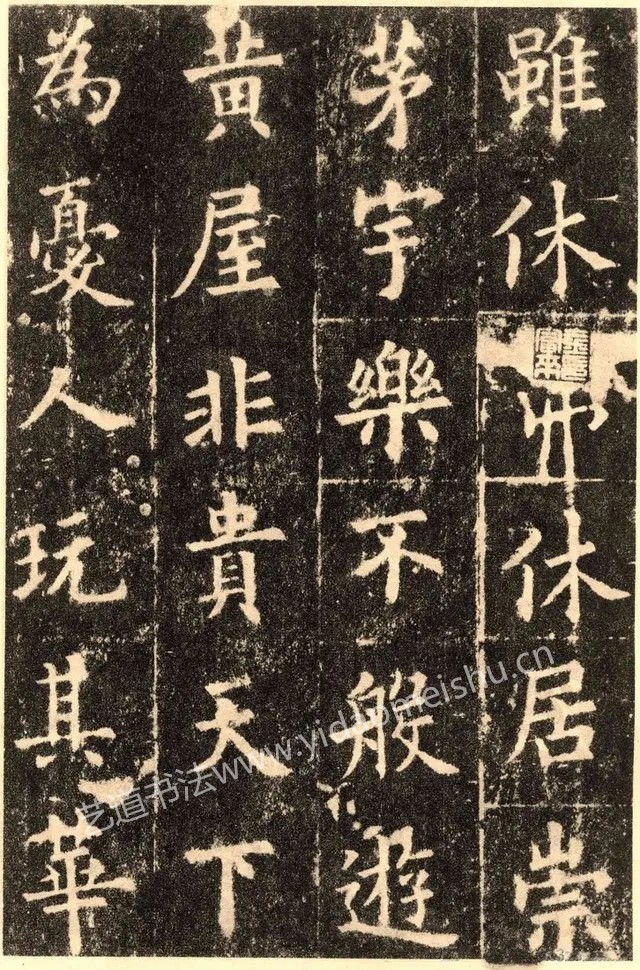 雖休休居崇
茅宇樂不般遊
黃屋非貴天下
為憂人玩其華
艺道书法www.yidaomeishu.cn